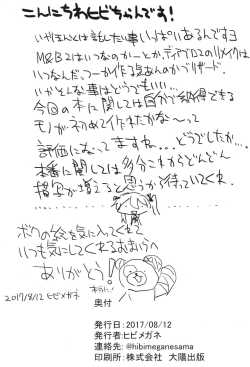 こんにちわヒビちゃんです！
いやほんとは話したい事いっぱいあるんですヨ
M&B2はいつなのかーとか、ディアブロ2のリメイクは
いつなんだっつーか作る気あんのかブリザード
いやそんな事はどうでもいい…
今回の本に関しては自分で納得できる
モノが初めて作れたかな〜って
評価になってますね…どうでしたか…
本番に関しては多分これからどんどん
描写が増えると思うから待っていてくれ
ボクの絵を気に入ってくれて
いつも気にしてくれるおまいらへ
ありがとう！
2017/8/12 ヒビメガネ
奥付
発行日:2017/08/12
発行者:ヒビメガネ
連絡先:@hibimeganesama
印刷所:株式会社 大陽出版